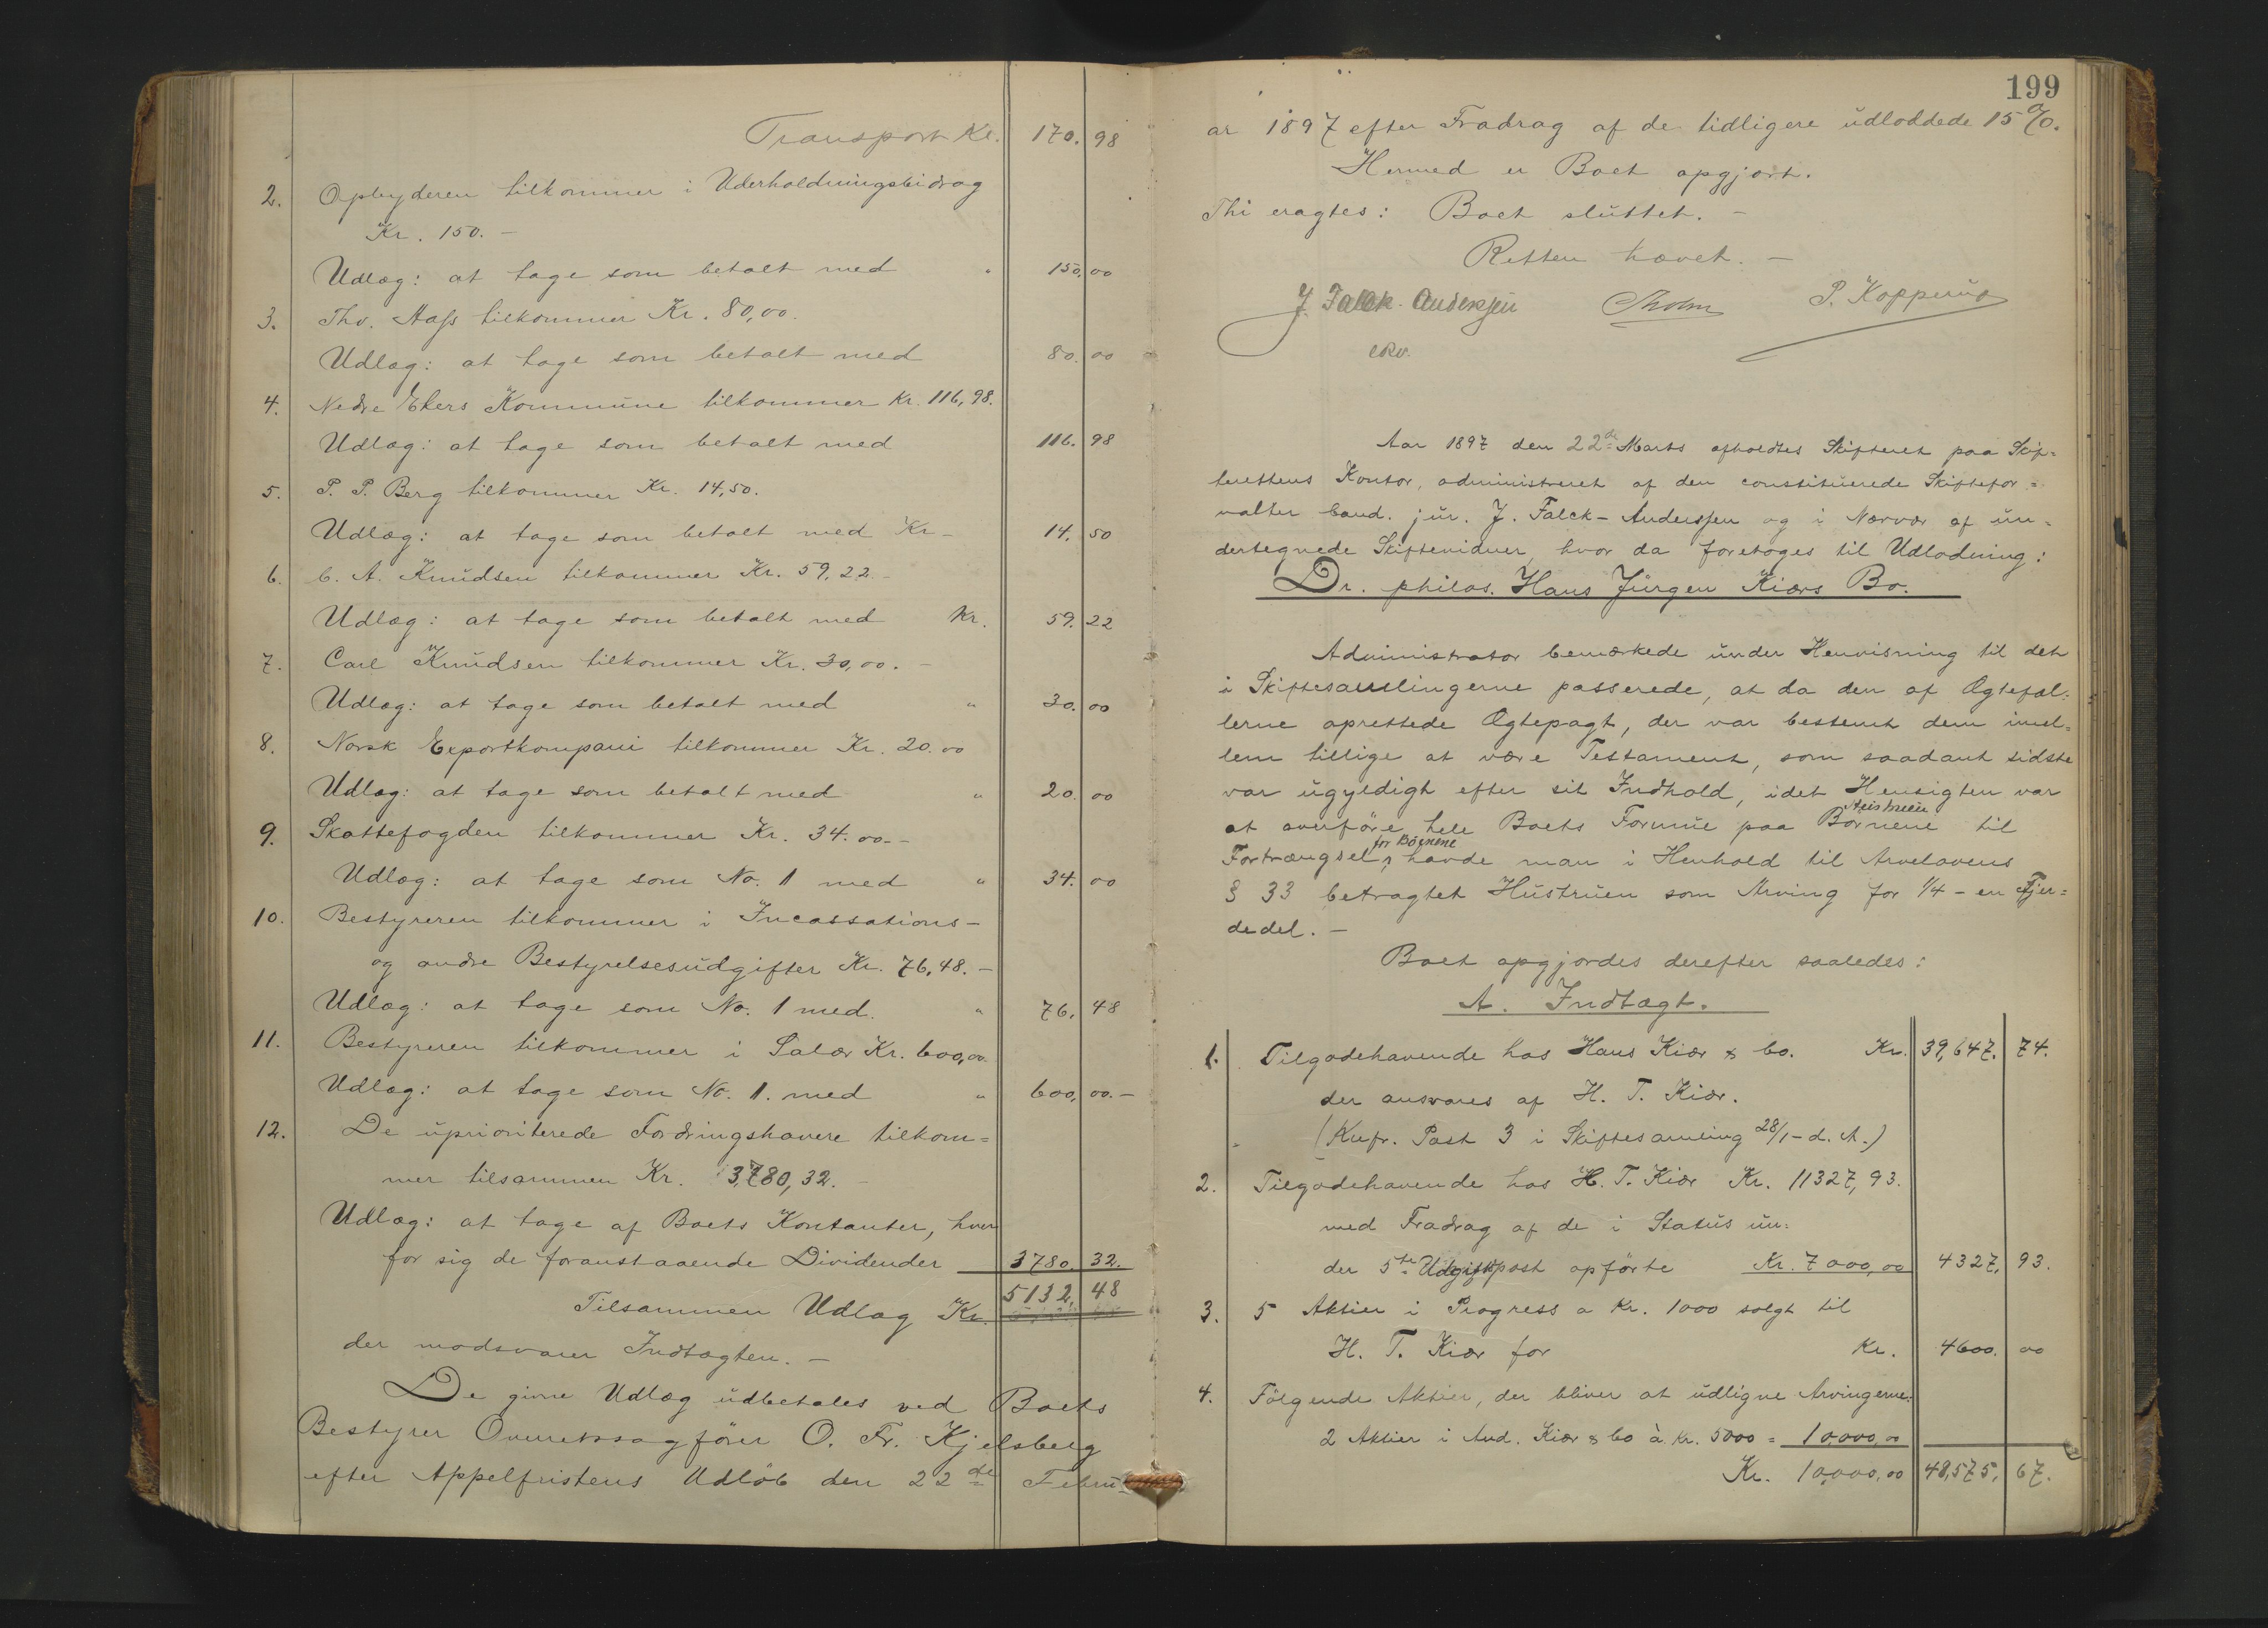 Transport Kr. 170. 98
2. Opbyderen tilkommer i Uderholdningsbidrag
Kr. 150. -
Udlæg: at tage som betalt med " 150. 00
3. Thv. Aass tilkommer Kr. 80,00.
Udlæg: at tage som betalt med 80. 00
4. Nedre Ekers Kommune tilkommer Kr. 116,98.
Udlæg: at tage som betalt med 116. 98
5. P. P. Berg tilkommer Kr. 14,50.
Udlæg: at tage som betalt med Kr - 14. 50
6. C. A. Knudsen tilkommer Kr. 59,22.-
Udlæg: at tage som betalt med Kr. 59. 22
7. Carl Knudsen tilkommer Kr. 30,00. -
Udlæg: at tage som betalt med " 30. 00
8. Norsk Exportkompani tilkommer Kr. 20.00
Udlæg: at tage som betalt med " 20. 00
9. Skattefogden tilkommer Kr. 34.00.-
Udlæg: at tage som No. 1 med " 34. 00
10. Bestyreren tilkommer i Incassations-
og andre Bestyrelsesudgifter Kr. 76,48. -
Udlæg: at tage som No. 1 med. " 76. 48
11. Bestyreren tilkommer i Salær Kr. 600,00.
Udlæg: at tage som No. 1. med " 600. 00.-
12. De uprioriterede Fordringshavere tilkom=
mer tilsammen Kr. 3,780,32. -
Udlæg: at tage af Boets Kontanter, hver
for sig de foranstaaende Dividender 3780. 32.
Tilsammen Udlæg Kr. 5132, 48
der modsvarer Indtægten. -
De givne Udlæg udbetales ved Boets
Bestyrer Overretssagfører O. Fr. Kjelsberg
efter Appelfristens Udløb den 22de Febru
199
ar 1897 efter Fradrag af de tidligere udloddede 15 %.
Hermed er Boet opgjort.
Thi eragtes: Boet sluttet. -
Retten hævet. -
J. Falck-Anderssen Tholm P. Kopperud
Aar 1897 den 22de Marts afholdtes Skifteret paa Skif=
terettens Kontor, administreret af den constituerede Skiftefor=
valter Cand. jur. J. Falck-Anderssen og i Nærvær af un=
dertegnede Skiftevidner, hvor da foretoges til Udlodning:
Dr. philos. Hans Jürgen Kiærs Bo.
Administrator bemærkede under Henvisning til det
i Skiftesamlingerne passerede, at da den af Ægtefæl=
lerne oprettede Ægtepagt, der var bestemt dem imel=
lem tillige at være Testament, som saadant sidste
var ugyldigt efter sit Indhold, idet Hensigten var
Hustruen
at overføre hele Boets Formue paa Børnene til
for Børnene
Fortrængsel, havde man i Henhold til Arvelovens
§ 33 betragtet Hustruen som Arving for 1/4 - en Fjer=
dedel. -
Boet opgjordes derefter saaledes:
A. Indtægt.
1. Tilgodehavende hos Hans Kiær & Co. Kr. 39,647. 74.
der ansvares af H. T. Kiær.
(Knfr. Post 3 i Skiftesamling 28/1 - d. A.)
2. Tilgodehavende hos H. T. Kiær Kr. 11327,93.
med Fradrag af de i Status un=
der 5te Udgiftspost opførte Kr. 7000,00 4327, 93.
3. 5 Aktier i Progress a Kr. 1000 solgt til
H. T. Kiær for Kr. 4600. 00
4. Følgende Aktier, der bliver at udligne Arvingerne:
2 Aktier i And. Kiær & Co à Kr. 5000 = 10,000,00
Kr. 10,000,00 48,575, 67.